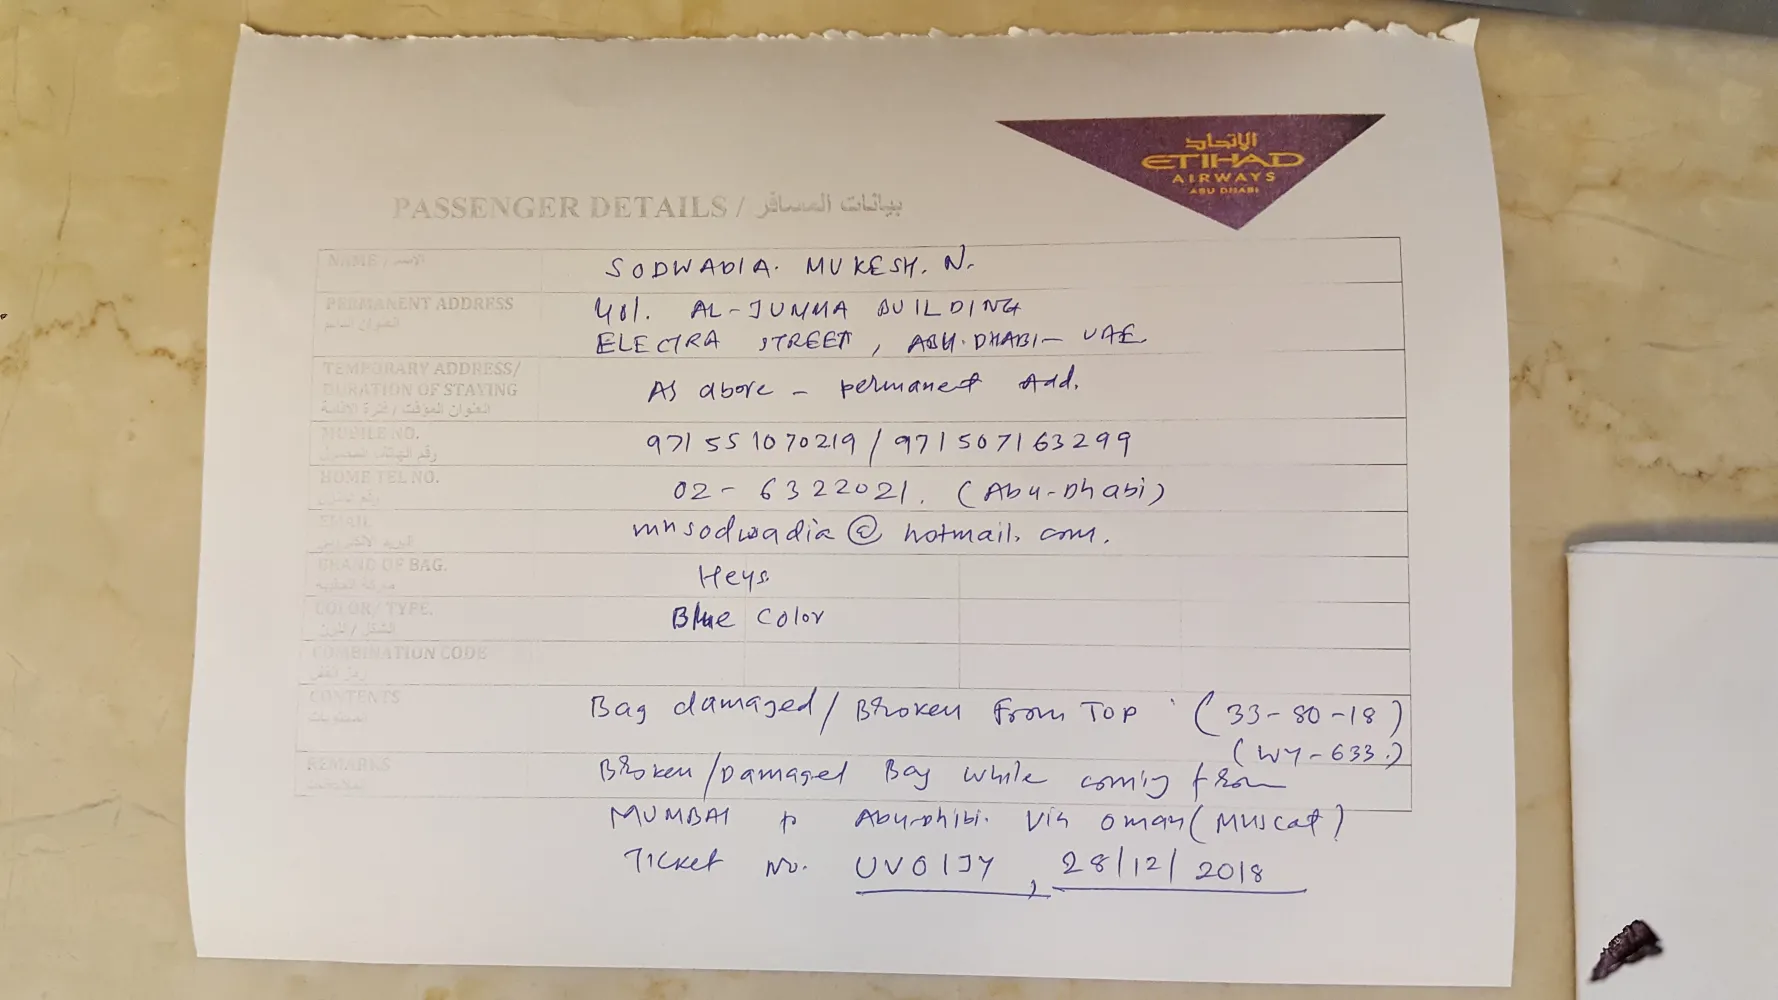 الاتحاد
ETIHAD
AIRWAYS
ABU DHABI
PASSENGER DETAILS / بيانات المسافر
NAME / الاسم SODWADIA. MUKESH. N.
PERMANENT ADDRESS 401. AL-JUMMA BUILDING
العنوان الدائم ELECTRA STREET, ABU.DHABI- UAE.
TEMPORARY ADDRESS/
DURATION OF STAYING As above - permanent Add.
العنوان المؤقت / فترة الاقامة
MOBILE NO. 971 55 1070219 / 971507163299
رقم الهاتف المحمول
HOME TEL NO. 02- 6322021. (Abu-Dhabi)
EMAIL mnsodwadia@hotmail.com.
البريد الالكتروني
BRAND OF BAG. Heys
ماركة الحقيبة
COLOR/ TYPE. Blue Color
الشكل / اللون
COMBINATION CODE
رمز القفل
CONTENTS Bag damaged/Broken From Top (33-80-18)
(WY-633.)
REMARKS Broken/Damaged Bag while coming from
MUMBAI to Abu-Dhibi. Via Oman(Muscat)
Ticket No. UVOIJY, 28/12/2018